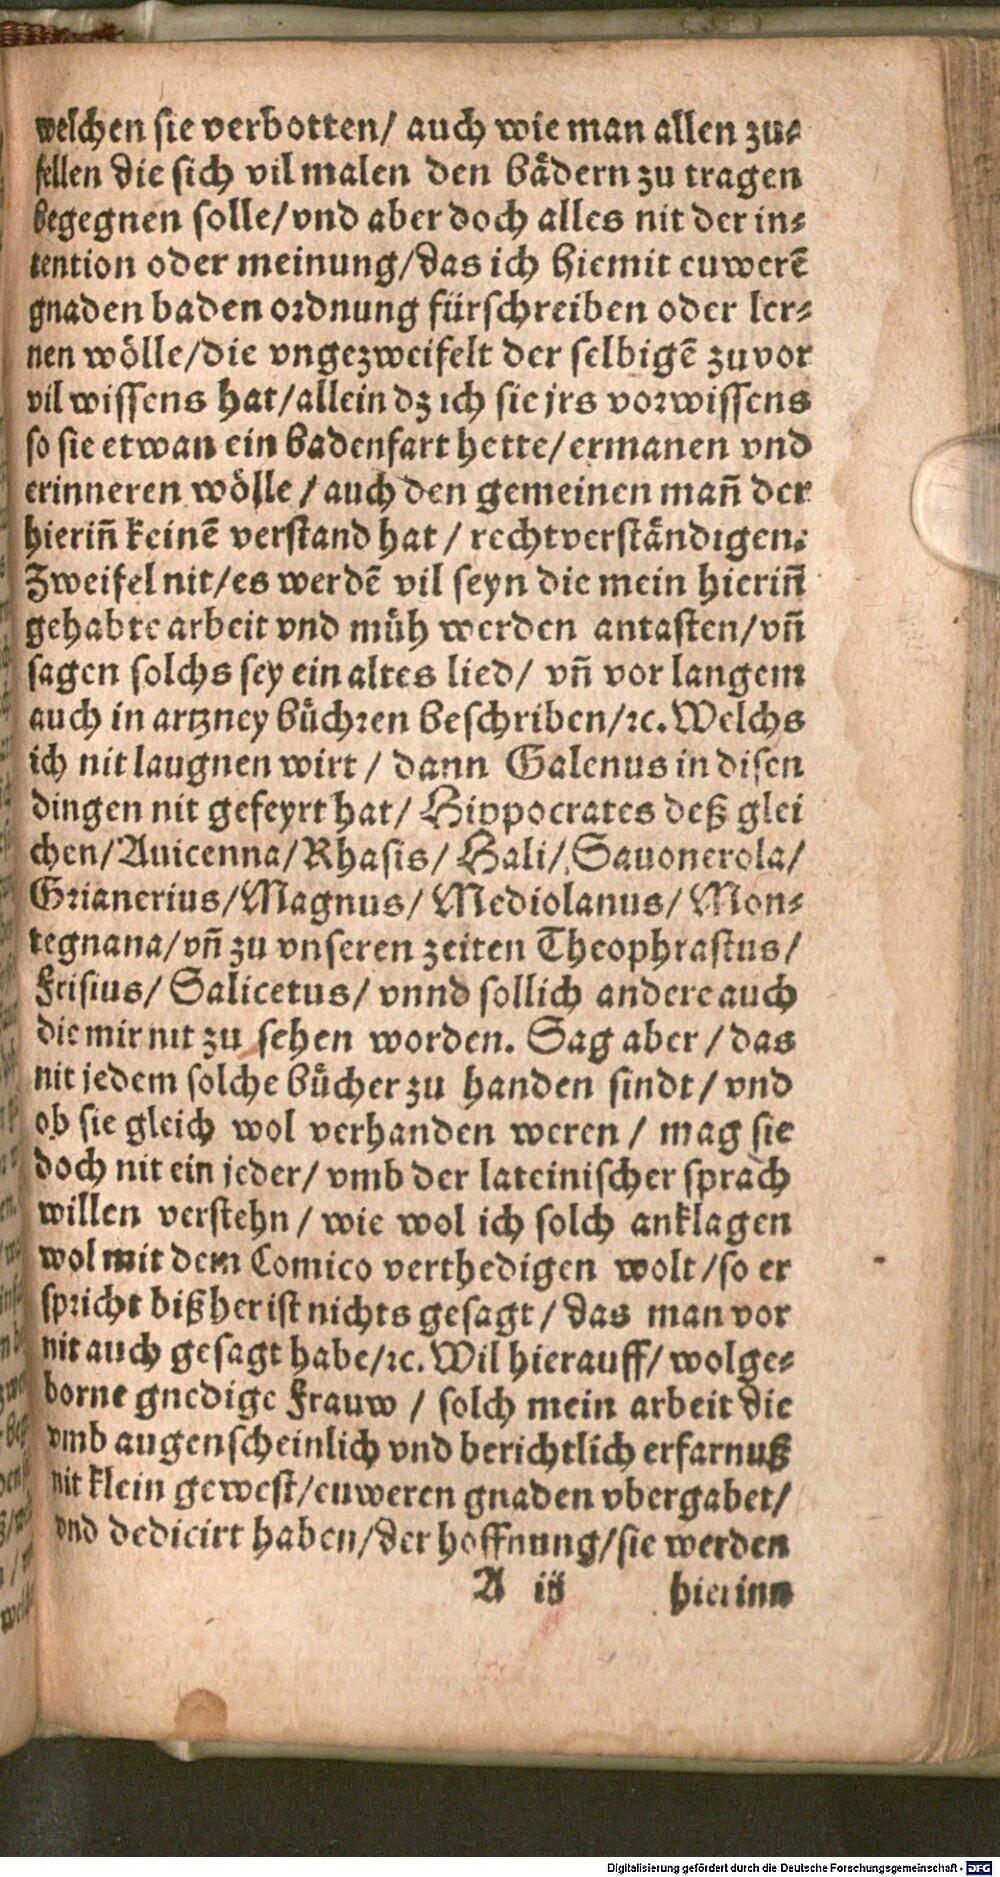 welchen sie verbotten/ auch wie man allen zu⸗
fellen die sich vil malen den bådern zu tragen
begegnen solle/vnd aber doch alles nit der in⸗
tention oder meinung/das ich hiemit euwerē
gnaden baden ordnung fürschreiben oder ler⸗
nen wölle/die vngezweifelt der selbigē zuvor
vil wissens hat/allein dz ich sie jrs vorwissens
so sie etwan ein badenfart hette/ermanen vnd
erinneren wölle / auch den gemeinen mañ der
hieriñ keinē verstand hat / rechtverståndigen.
Zweifel nit/es werdē vil seyn die mein hieriñ
gehabte arbeit vnd müh werden antasten/vñ
sagen solchs sey ein altes lied/ vñ vor langem
auch in artzney bůchren beschriben/ꝛc. Welchs
ich nit laugnen wirt / dann Galenus in disen
dingen nit gefeyrt hat/ Hippocrates deß glei
chen/Auicenna/Rhasis/ Hali/ Sauonerola/
Grianerius/Magnus/ Mediolanus/ Mon⸗
tegnana/vñ zu vnseren zeiten Theophrastus/
Frisius/ Salicetus/ vnnd sollich andere auch
die mir nit zu sehen worden. Sag aber / das
nit jedem solche bůcher zu handen sindt/ vnd
ob sie gleich wol verhanden weren / mag sie
doch nit ein jeder/ vmb der lateinischer sprach
willen verstehn / wie wol ich solch anklagen
wol mit dem Comico verthedigen wolt /so er
spricht bißher ist nichts gesagt / das man vor
nit auch gesagt habe/ꝛc. Wil hierauff/ wolge⸗
borne gnedige Frauw / solch mein arbeit die
vmb augenscheinlich vnd berichtlich erfarnuß
nit klein gewest/euweren gnaden vbergabet/
vnd dedicirt haben/der hoffnung/sie werden
A iij hierinn
Digitalisierung gefördert durch die Deutsche Forschungsgemeinschaft - DFG